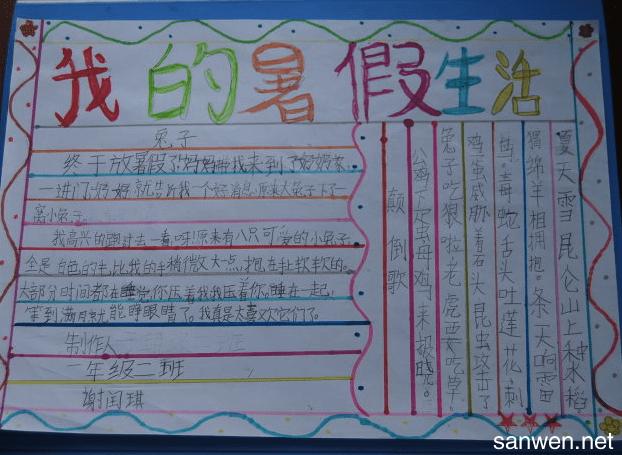 我的暑假生活
兔子
终于放暑假了妈妈带我来到了奶奶家,
一进门奶奶就告诉我一个好消息,原来大兔子下了一
窝小兔子。
我高兴的跑过去一看,呀!原来有八只可爱的小兔子
全是白色的毛,比我的手稍微大点,抱在手里软软的。
大部分时间都在睡觉,你压着我我压着你,睡在一起,
等到满月就能睁眼睛了。我真是太喜欢它们了。
制作人
一年级二班
谢闰琪
夏天雪昆仑山上种水稻
猬绵羊相拥抱。条天响雷
毒蛇舌头吐莲花刺
鸡蛋威胁着石头昆虫攻击了
兔子吃狼啦老虎要吃草。
公鸡下蛋母鸡来报晓。
颠倒歌
sanwen.net